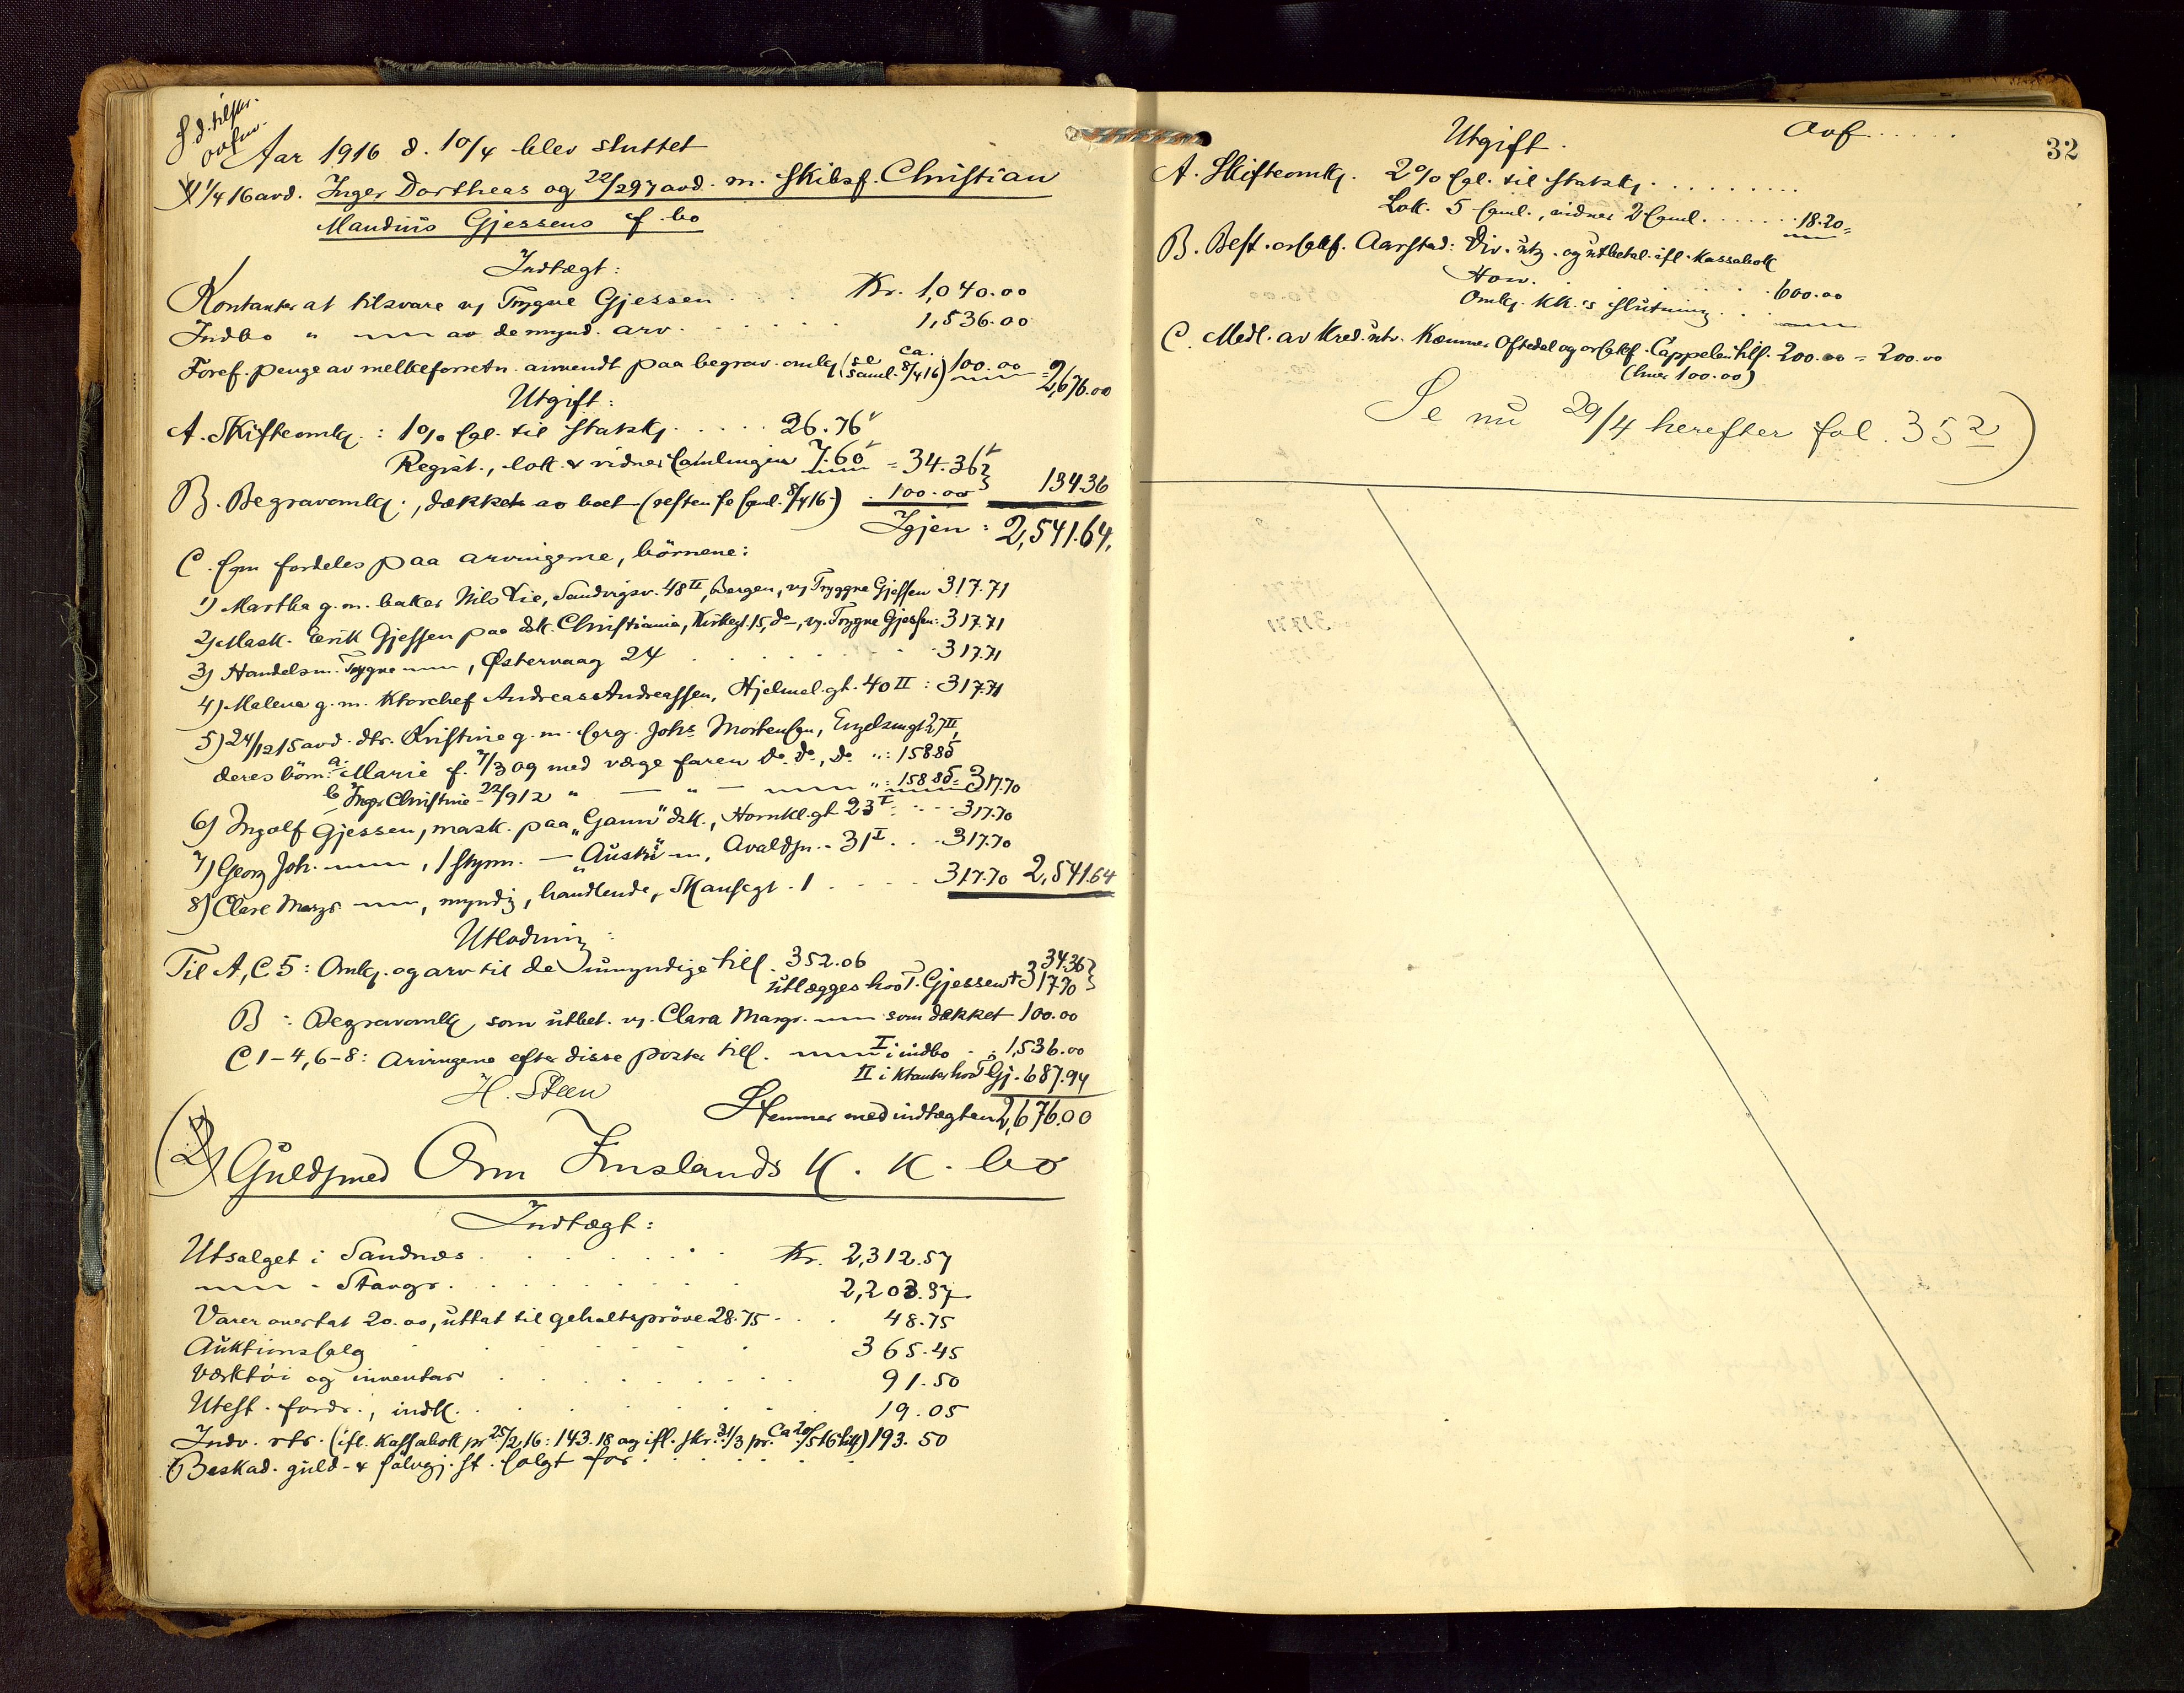 Aar 1916 d. 10/4 blev sluttet
1/4 16 avd. Inger Dortheas og 22/2 97 avd. m. Skibsf. Christian
Maudius Gjessens f. bo
Indtægt:
Kontanter at tilsvare v/ Trygve Gjessen . . Kr. 1,040.00
Indbo " — av de mynd. arv. . . . . . 1,536.00
Foref. penge av melkeforretn. anvendt paa begrav. omk. (se saml. 8/4 16) ca. 100.00 = 2,676.00
Utgift:
A. Skifteomk.: 1% sal. til statsk. . . . . 26.76
Regist., lok. & vidnesamlingen 7.60 = 34.36
B. Begravomk., dækket av boet (resten se saml. 8/4 16) . 100.00 134.36
Igjen: 2,541.64.
C. som fordeles paa arvingerne, börnene:
1) Martha g. m. baker Nils Lie, Sandvigsv. 48 II, Bergen, v/ Tryggve Gjessen 317.71
2) Mask. Erik Gjessen paa dsk. Christiania, Kirkegt. 15, do –, v/ Trygve Gjessen: 317.71
3) Handelsm. Trygve —, Østervaag 24 . . . . . 317.71
4) Malena g. m. Ktorchef Andreas Andreassen, Hjelmel.gt. 40 II : 317.71
5) 24/12 15 avd. dtr. Kristine g. m. Johs Mortensen, Engelsmgt 27 II,
deres börn: a. Marie f. 7/3 09 med værge faren do. do., do. ": 158.85
b Inger Christine - 22/9 12 " — " — — ": 158.85 = 317.70
6) Ingolf Gjessen, mask. paa "Gann" dsk., Hornkl.gt 23 I . . . 317.70
7) Georg Joh. —, 1 styrm. — "Auski" —, Avaldsn. - 31 I . . . 317.70
8) Clare Margr. —, myndig, handlende, Skansegt. 1 . . . . 317.70 2,541.64
Utlodning:
Til A, C 5: Omk. og arv til de umyndige till. 352.06 34.36
utlægges hos T. Gjessen + 317.70
B : Begravomk, som utbet. v/ Clara Margr. — som dækket 100.00
C 1–4, 6–8: arvingene efter disse poster till. — I i indbo . . 1,536.00
II i ktanter hos T Gj. 687.94
H. Steen
Stemmer med indtægten 2,676.00
2) Guldsmed Orm Imslands K. K. bo
Indtægt:
Utsalget i Sandnæs . . . . . . . Kr. 2,312.57
— - Stavgr. . . . . . . . . 2,203.37
Varer overtat 20.00, uttat til gehaltsprøve 28.75 . . . 48.75
Auktionssalg . . . . . . . 365.45
Værktøi og inventar . . . . . . . . 91.50
Utest. fordr., indk. . . . . . . . . 19.05
Indv. rtr. (ifl. kassabok pr 25/2 16: 143.18 og ifl. skr. 31/3 pr. ca 20/5 16 till) 193.50
Beskad. guld- & sølvgj. st. solgt for . . . . . .
Utgift. Avf . . . . .
32
A. Skifteomk. 2% sal. til statsk. . . . . . . . . .
Lok. 5 saml., vidner 2 saml. . . . . . . 18.20 =
B. Best. orsakf. Aarstad: Div. utg. og utbetal. ifl. kassabok
Hon. . . . . . . 600.00
Omk. KK.'s slutning . . .
C. Medl. av kred.utv. kæmner Oftedal og orsakf. Cappelen till. 200.00 = 200.00
(hver 100.00)
Se nu 29/4 herefter fol. 35 2)